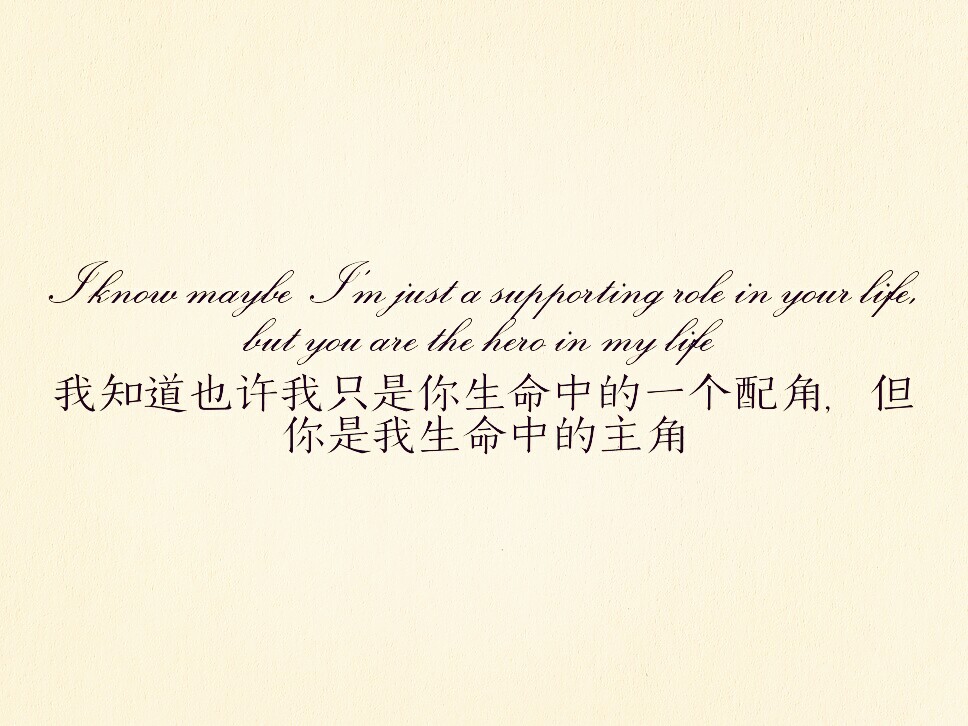 I know maybe I'm just a supporting role in your life,
but you are the hero in my life
我知道也许我只是你生命中的一个配角，但
你是我生命中的主角